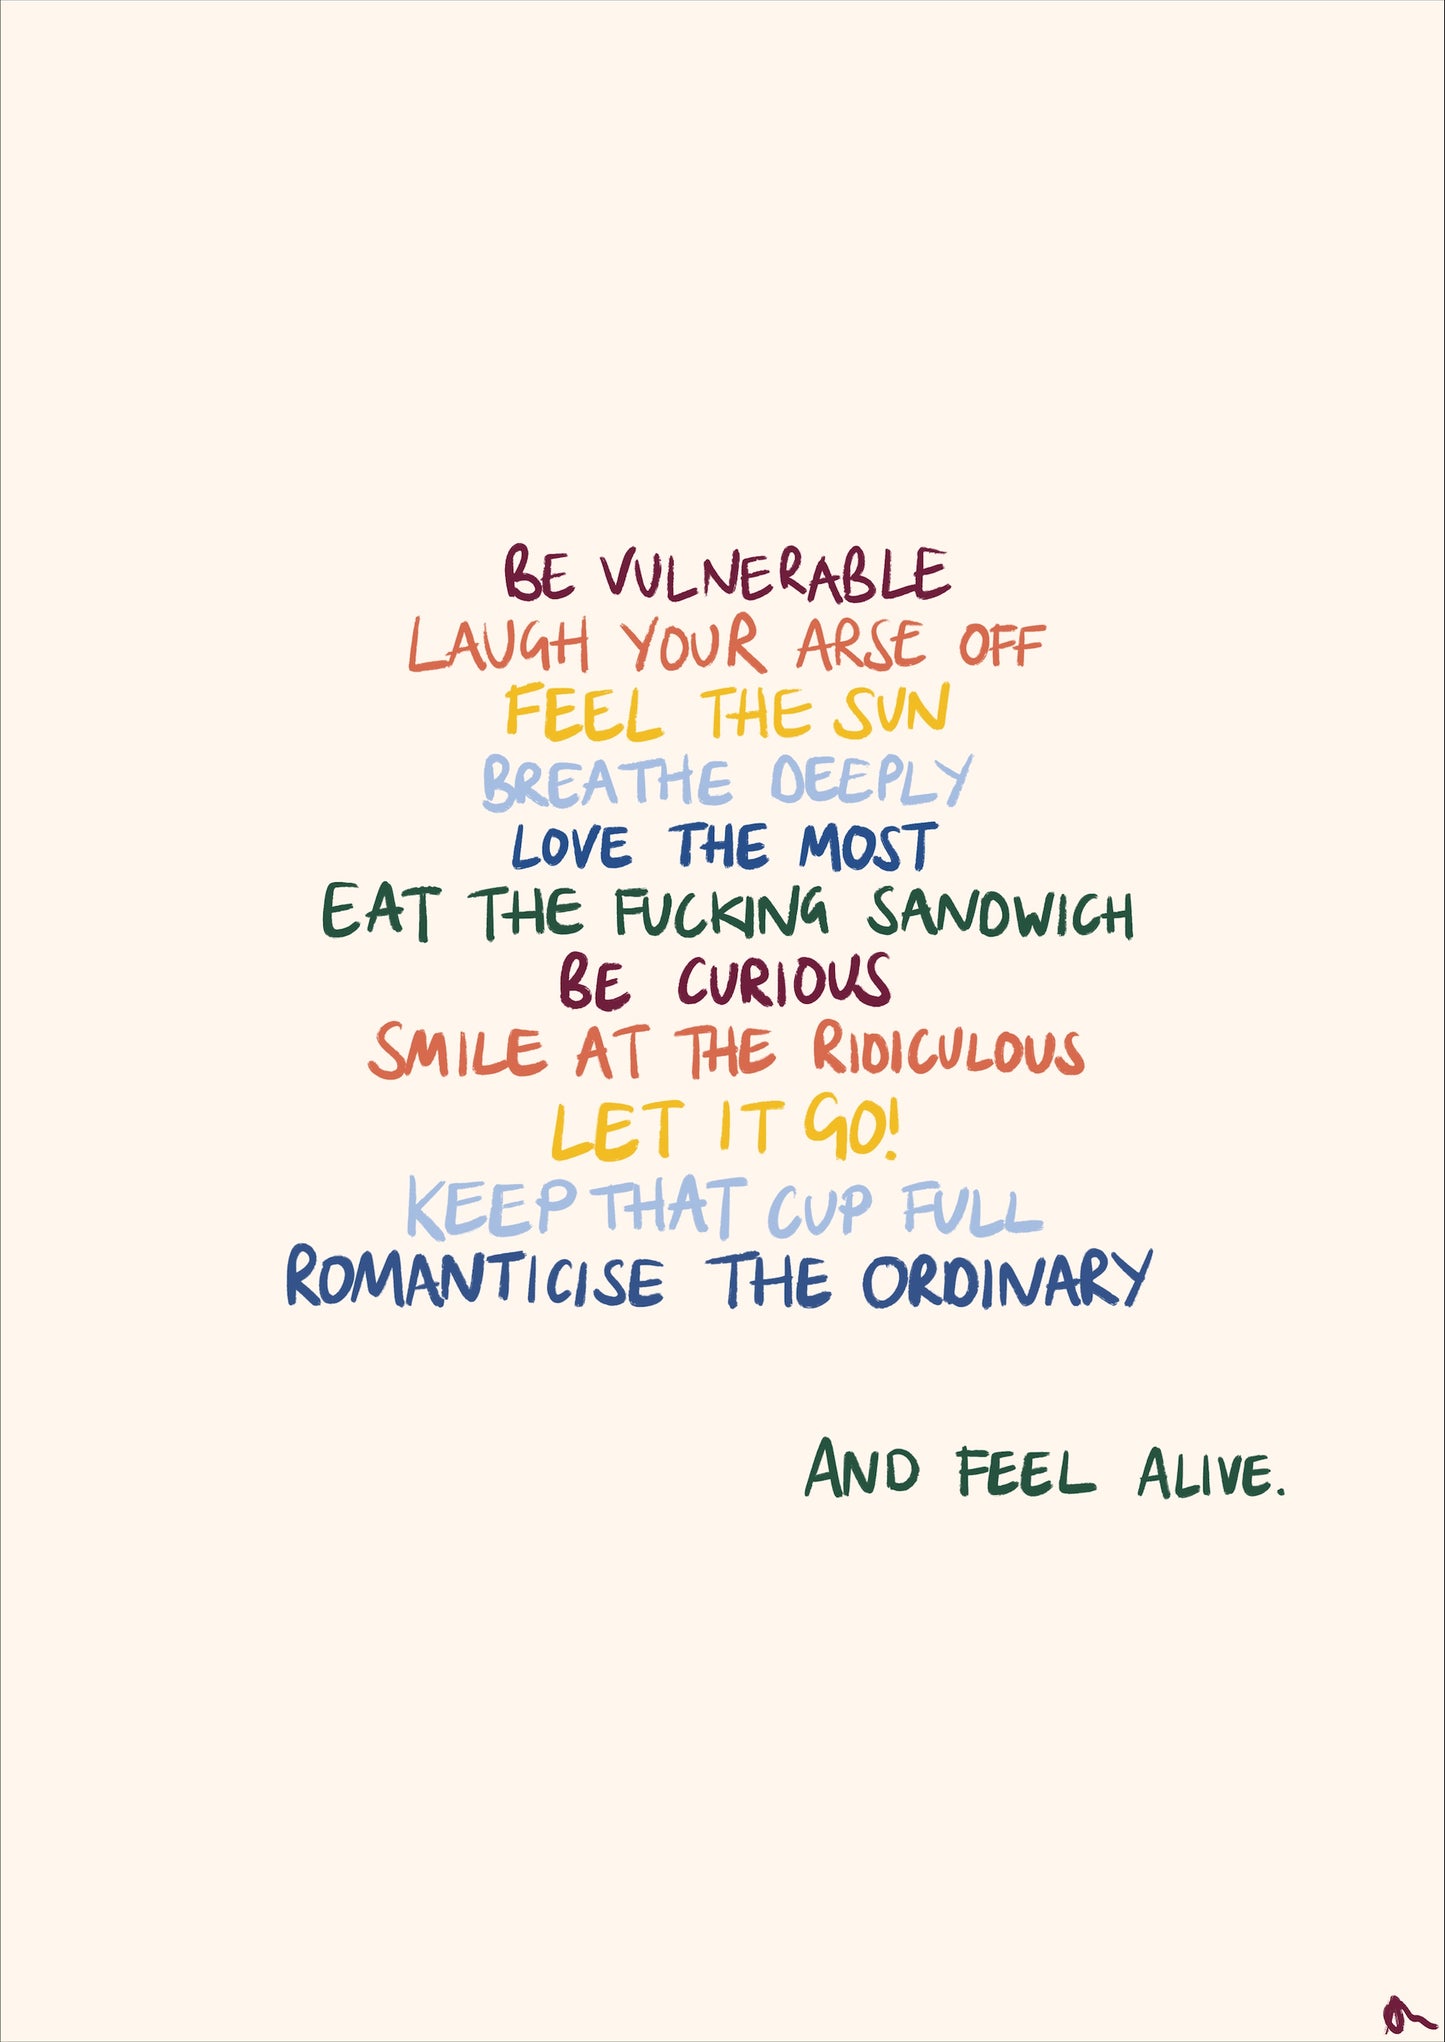 BE VULNERABLE
LAUGH YOUR ARSE OFF
FEEL THE SUN
BREATHE DEEPLY
LOVE THE MOST
EAT THE FUCKING SANDWICH
BE CURIOUS
SMILE AT THE RIDICULOUS
LET IT GO!
KEEP THAT CUP FULL
ROMANTICISE THE ORDINARY
AND FEEL ALIVE.